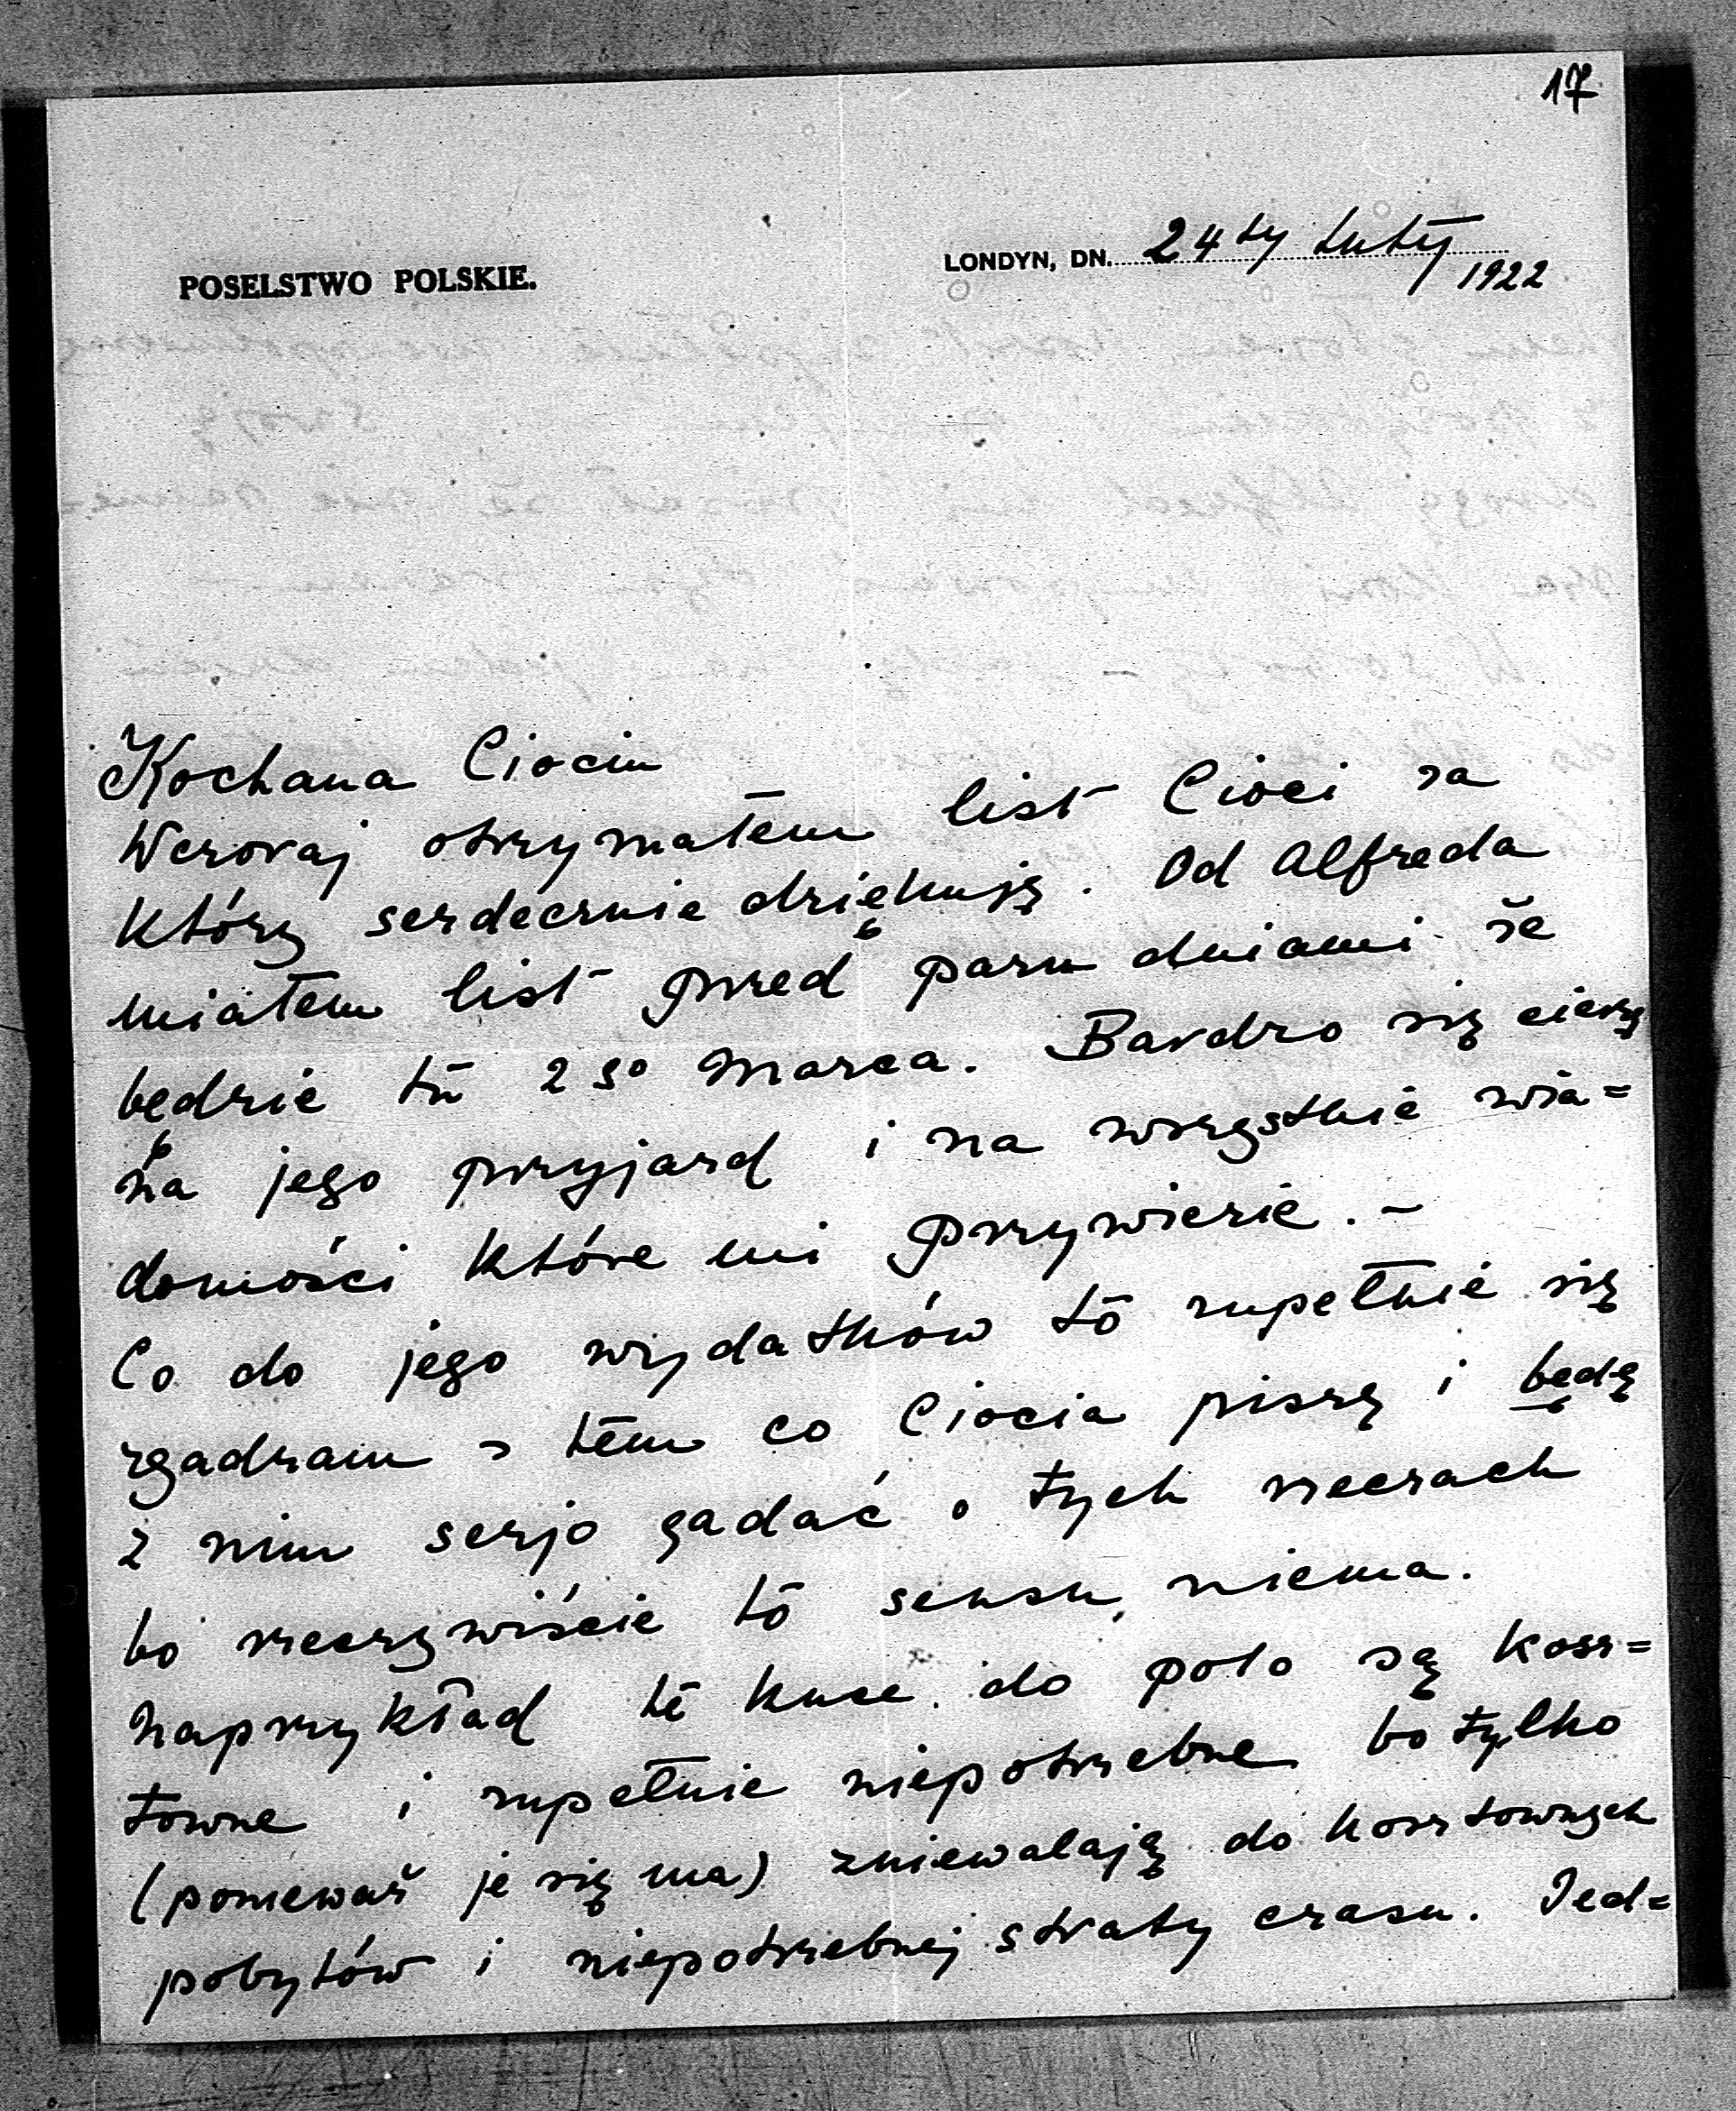 17
POSELSTWO POLSKIE.
LONDYN, DN. 24ty Luty
1922
Kochana Ciociu
Wczoraj otrzymałem list Cioci za
który serdecznie dziękuję. Od Alfreda
miałem list przed paru dniami że
będzie tu 2go Marca. Bardzo się cieszę
na jego przyjazd i na wszystkie wia=
domości które mi przywiezie. –
Co do jego wydatków to zupełnie się
zgadzam z tem co Ciocia piszę i będę
z nim serjo gadać o tych rzeczach
bo rzeczywiście to sensu niema.
Naprzykład te kuce do polo są kosz=
towne i zupełnie niepotrzebne bo tylko
(ponieważ je się ma) zniewalają do kosztownych
pobytów i niepotrzebnej straty czasu. Jed=